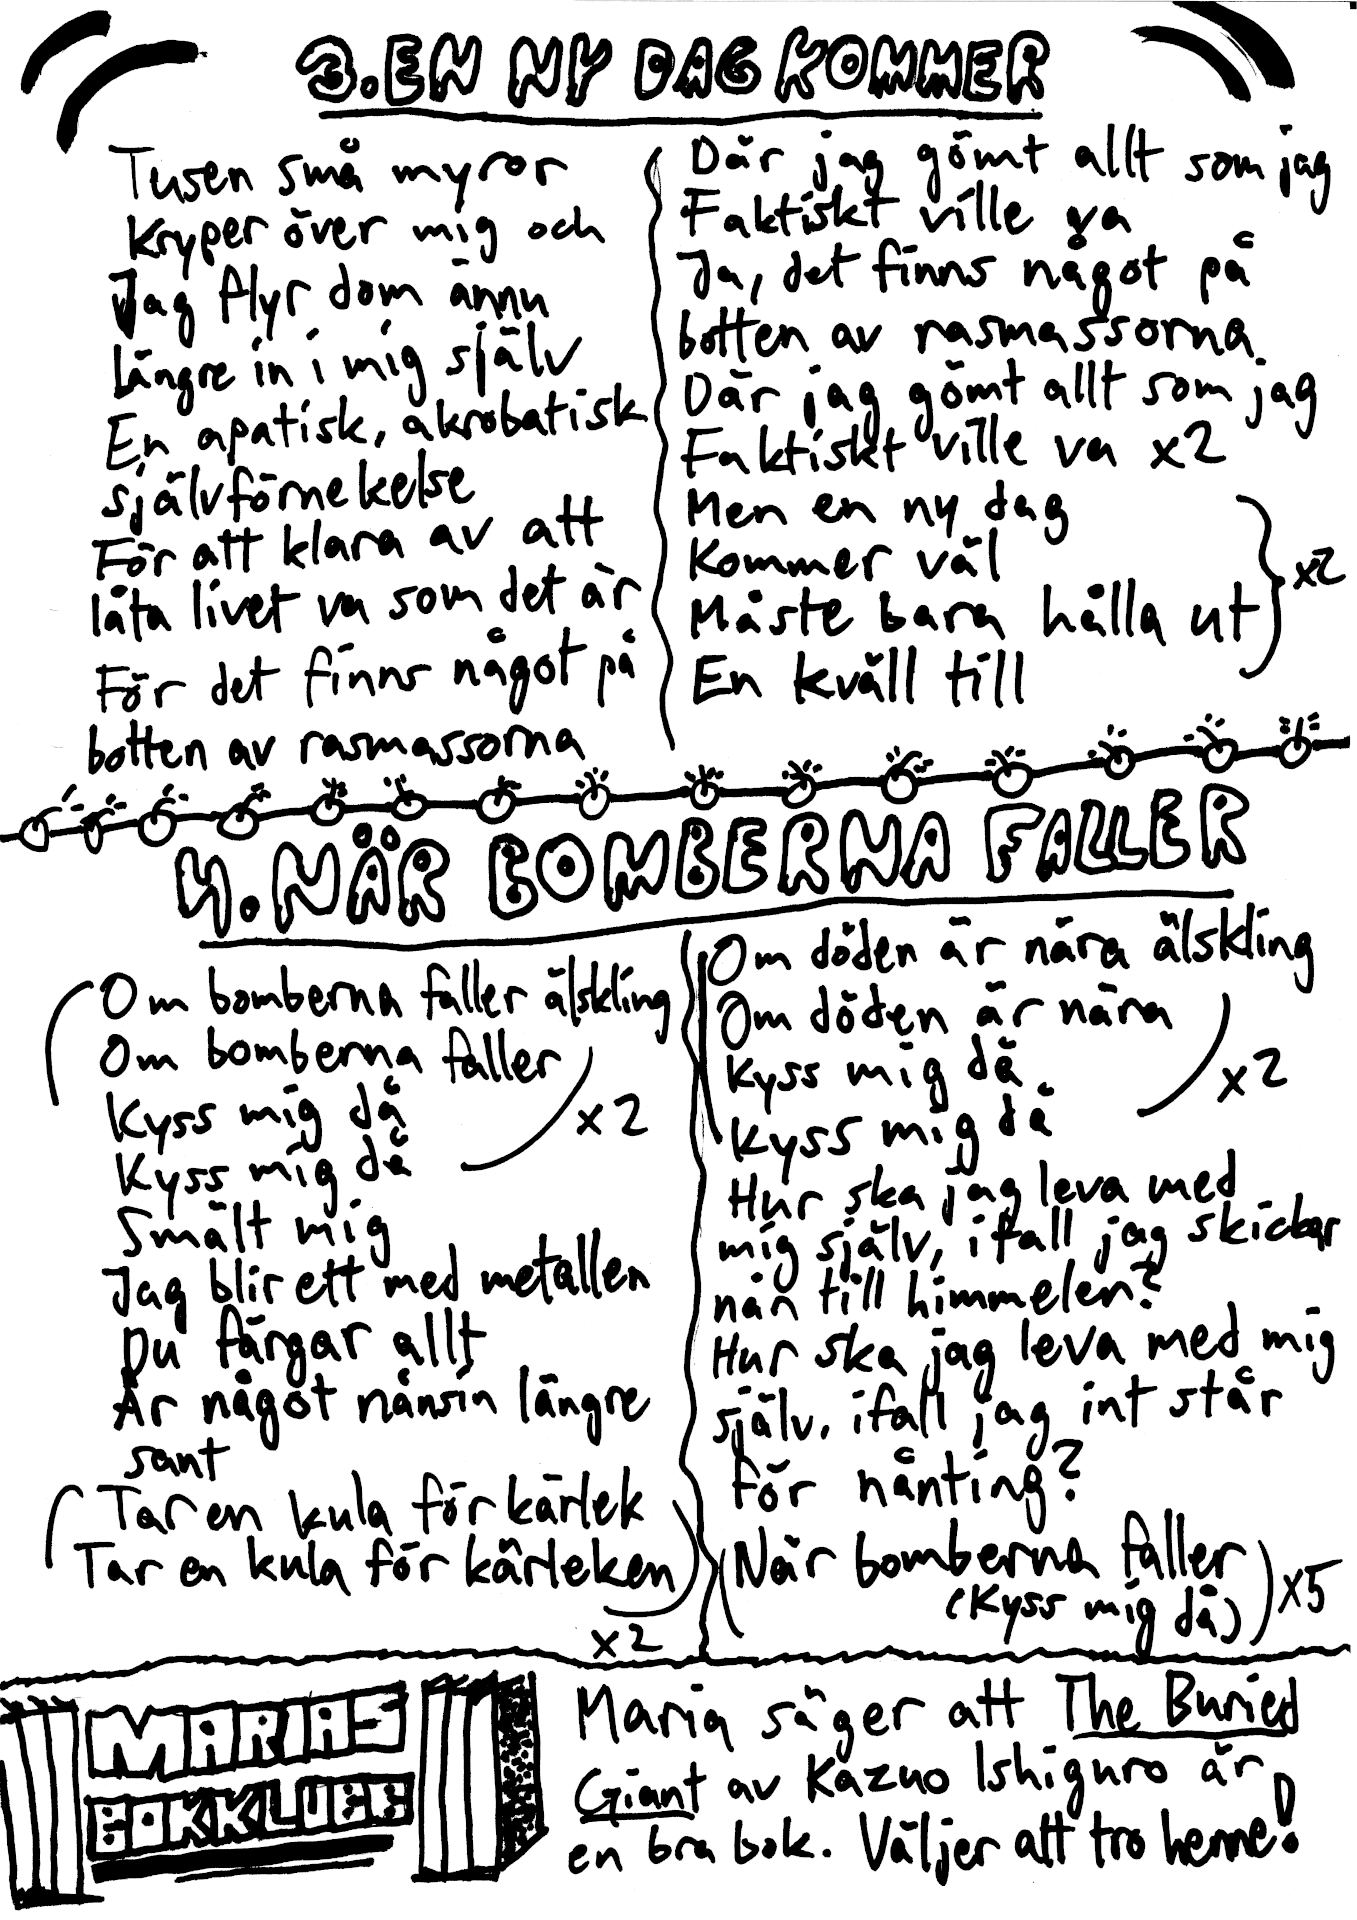 3. EN NY DAG KOMMER
Tusen små myror
Kryper över mig och
Jag flyr dom ännu
längre in i mig själv
En apatisk, akrobatisk
självförnekelse
För att klara av att
låta livet va som det är
För det finns något på
botten av rasmassorna
Där jag gömt allt som jag
Faktiskt ville va
Ja, det finns något på
botten av rasmassorna.
Där jag gömt allt som jag
Faktiskt ville va x2
Men en ny dag
Kommer väl
Måste bara hålla ut
En kväll till
x2
4. NÄR BOMBERNA FALLER
Om bomberna faller älskling
Om bomberna faller
Kyss mig då
Kyss mig då
x2
Smält mig
Jag blir ett med metallen
Du färgar allt
Är något nånsin längre
sant
Tar en kula för kärlek
Tar en kula för kärleken
x2
Om döden är nära älskling
Om döden är nära
Kyss mig då
Kyss mig då
x2
Hur ska jag leva med
mig själv, ifall jag skickar
nån till himmelen?
Hur ska jag leva med mig
själv, ifall jag int står
för nånting?
(När bomberna faller
(Kyss mig då)) x5
MARIAS
BOKKLUBB
Maria säger att The Buried
Giant av Kazuo Ishiguro är
en bra bok. Väljer att tro henne!